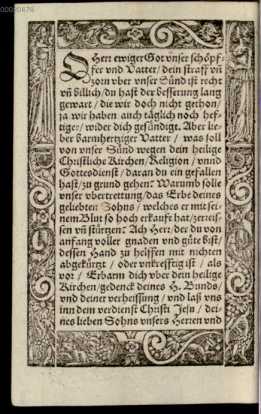 00020876
O Herr ewiger Got vnser schöpf-
fer vnd Vatter / dein straff vñ
zorn vber vnser Sünd ist recht
vñ billich / du hast der besserung lang
gewart / die wir doch nicht gethon /
ja wir haben auch täglich noch hef-
tiger / wider dich gesündigt. Aber lie-
ber barmhertziger Vatter / was soll
von vnser Sünd wegen dein heilige
Christliche Kirchen / Religion / vnnd
Gottesdienst / daran du ein gefallen
hast / zu grund gehen? Warumb solle
vnser vbertrettung / das Erbt deines
geliebten Sohns / welches er mit sei-
nem Blut so hoch erkaufft hat / zerreis-
sen vñ stürtzen? Ach Herr / der du von
anfang voller gnaden vnd güte bist /
dessen Hand zu helffen mit nichten
abgekürtzt / oder vnkrefftig ist / als
vor / Erbarm dich vber dein heilige
Kirchen / gedenck deines H. Bunds /
vnd deiner verheissung / vnd laß vns
inn dem verdienst Christi Jesu / dei-
nes lieben Sohns vnsers Herren vnd